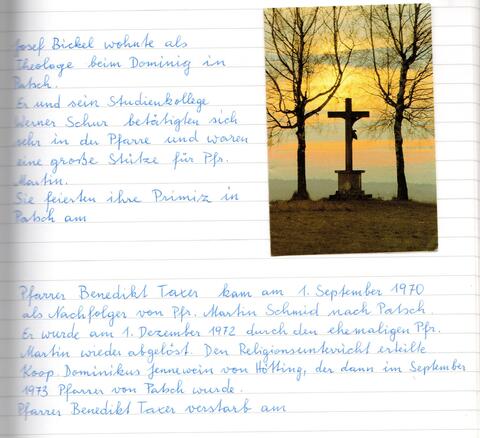 Josef Bickel wohnte als
Theologe beim Dominig in
Patsch.
Er und sein Studienkollege
Werner Schur betätigten sich
sehr in der Pfarre und waren
eine große Stütze für Pfr.
Martin.
Sie feierten ihre Primiz in
Patsch am
Pfarrer Benedikt Taxer kam am 1. September 1970
als Nachfolger von Pfr. Martin Schmid nach Patsch.
Er wurde am 1. Dezember 1972 durch den ehemaligen Pfr.
Martin wieder abgelöst. Den Religionsunterricht erteilte
Koop. Dominikus Jennewein von Hötting, der dann im September
1973 Pfarrer von Patsch wurde.
Pfarrer Benedikt Taxer verstarb am